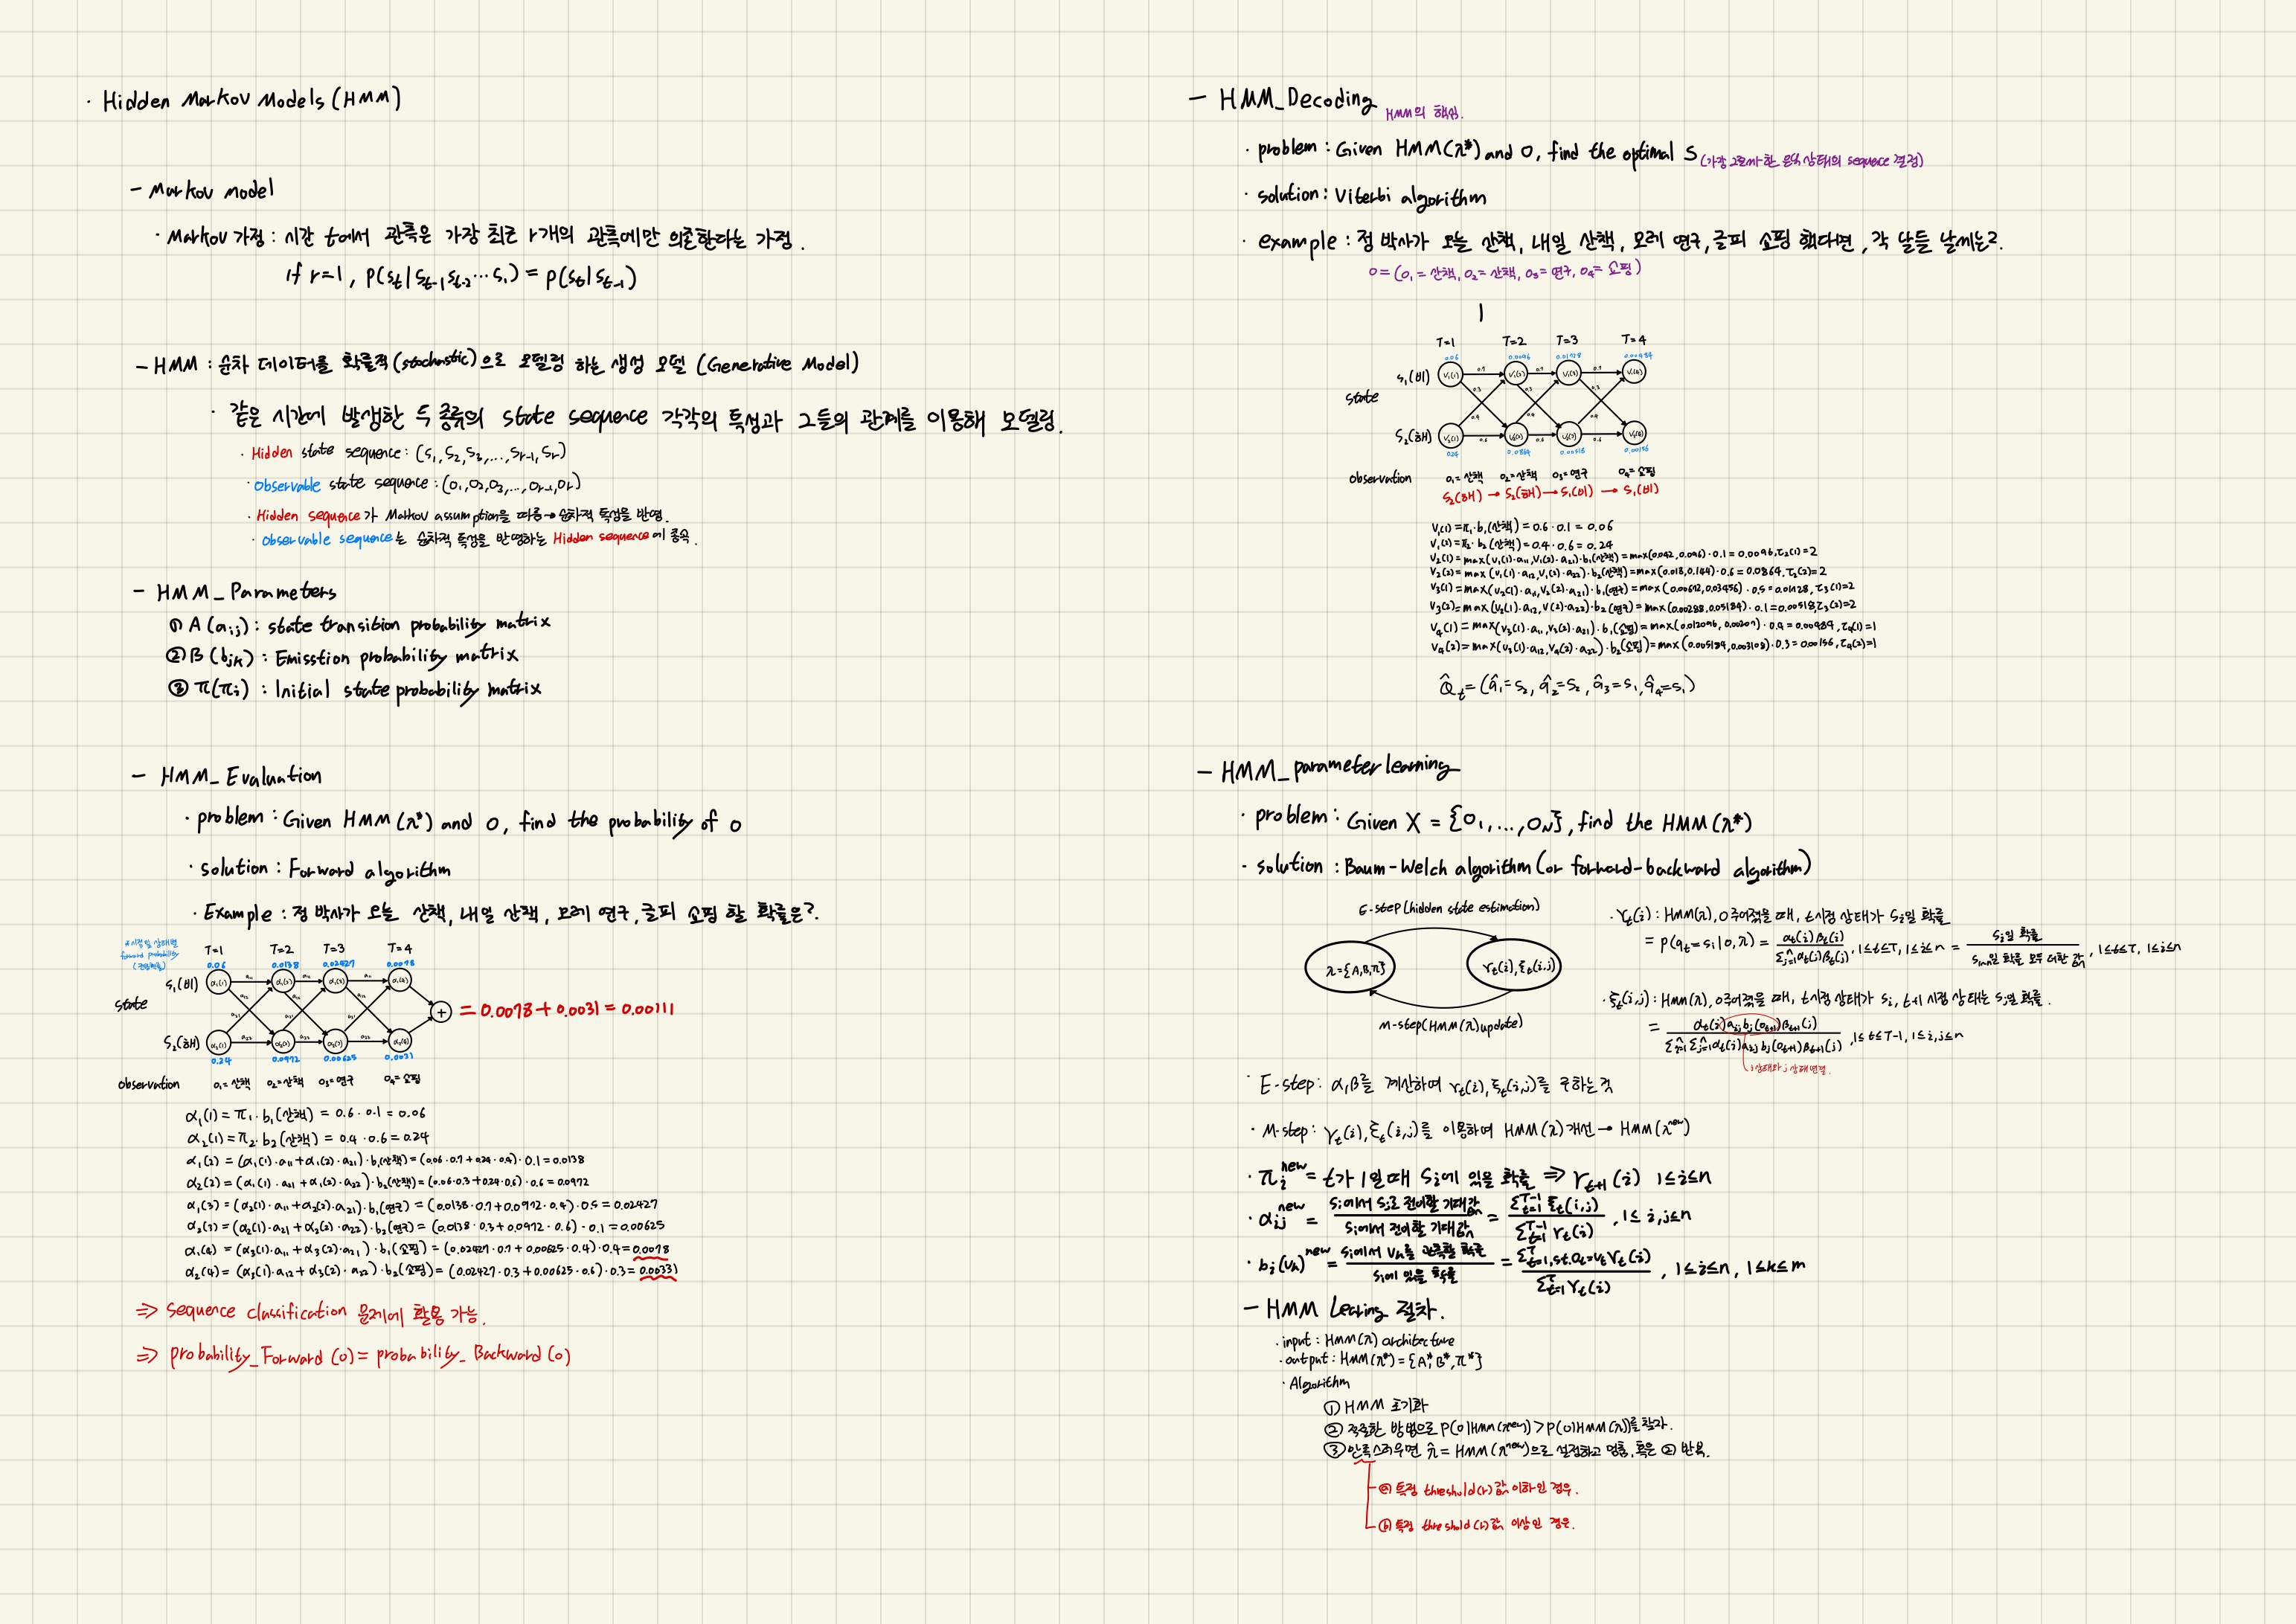 · Hidden Markov Models (HMM)
- Markov model
· Markov 가정 : 시간 t에서 관측은 가장 최근 r개의 관측에만 의존한다는 가정.
if r=1, p(st|st-1 st-2 ··· s1) = p(st|st-1)
- HMM : 순차 데이터를 확률적(stochastic)으로 모델링 하는 생성 모델 (Generative Model)
· 같은 시간에 발생한 두 종류의 state sequence 각각의 특성과 그들의 관계를 이용해 모델링.
· Hidden state sequence : (S1, S2, S3, ..., Sr-1, Sr)
· Observable state sequence : (O1, O2, O3, ..., Or-1, Or)
· Hidden sequence가 Markov assumption을 따름 → 순차적 특성을 반영.
· Observable sequence는 순차적 특성을 반영하는 Hidden sequence에 종속.
- HMM_Parameters
① A (aij) : state transition probability matrix
② B (bjk) : Emisstion probability matrix
③ π(πi) : Initial state probability matrix
- HMM_Evaluation
· problem : Given HMM (λ*) and O, find the probability of O
· solution : Forward algorithm
· Example : 정 박사가 오늘 산책, 내일 산책, 모레 연구, 글피 쇼핑 할 확률은?.
T=1 T=2 T=3 T=4
0.06 0.0138 0.02427 0.0078
S1(비) α1(1) α1(2) α1(3) α1(4)
state
+ = 0.0078 + 0.0031 = 0.00111
S2(해) α2(1) α2(2) α2(3) α2(4)
0.24 0.0972 0.00625 0.0031
observation o1=산책 o2=산책 o3=연구 o4=쇼핑
α1(1) = π1 · b1(산책) = 0.6 · 0.1 = 0.06
α2(1) = π2 · b2(산책) = 0.4 · 0.6 = 0.24
α1(2) = (α1(1) · a11 + α1(2) · a21) · b1(산책) = (0.06 · 0.7 + 0.24 · 0.4) · 0.1 = 0.0138
α2(2) = (α1(1) · a21 + α1(2) · a22) · b2(산책) = (0.06 · 0.3 + 0.24 · 0.6) · 0.6 = 0.0972
α1(3) = (α2(1) · a11 + α2(2) · a21) · b1(연구) = (0.0138 · 0.7 + 0.0972 · 0.4) · 0.5 = 0.02427
α2(3) = (α2(1) · a21 + α2(2) · a22) · b2(연구) = (0.0138 · 0.3 + 0.0972 · 0.6) · 0.1 = 0.00625
α1(4) = (α3(1) · a11 + α3(2) · a21) · b1(쇼핑) = (0.02427 · 0.7 + 0.00625 · 0.4) · 0.4 = 0.0078
α2(4) = (α3(1) · a12 + α3(2) · a22) · b2(쇼핑) = (0.02427 · 0.3 + 0.00625 · 0.6) · 0.3 = 0.00331
⇒ sequence classification 문제에 활용 가능.
⇒ probability_Forward (o) = probability_Backward (o)
- HMM_Decoding HMM의 핵심.
· problem : Given HMM(λ*) and O, find the optimal S (가장 그럴싸한 은닉 상태의 sequence 결정)
· solution : Viterbi algorithm
· example : 정 박사가 오늘 산책, 내일 산책, 모레 연구, 글피 쇼핑 했다면, 각 날들 날씨는?.
o = (o1 = 산책, o2 = 산책, o3 = 연구, o4 = 쇼핑)
T=1 T=2 T=3 T=4
0.06 0.0096 0.01728 0.00484
S1(비)
state
S2(해)
0.24 0.0864 0.00518 0.00156
observation o1=산책 o2=산책 o3=연구 o4=쇼핑
S2(해) → S2(해) → S1(비) → S1(비)
V1(1) = π1 · b1(산책) = 0.6 · 0.1 = 0.06
V1(2) = π2 · b2(산책) = 0.4 · 0.6 = 0.24
V2(1) = max(V1(1) · a11, V1(2) · a21) · b1(산책) = max(0.042, 0.096) · 0.1 = 0.0096, τ2(1)=2
V2(2) = max(V1(1) · a12, V1(2) · a22) · b2(산책) = max(0.018, 0.144) · 0.6 = 0.0864, τ2(2)=2
V3(1) = max(V2(1) · a11, V2(2) · a21) · b1(연구) = max(0.00672, 0.03456) · 0.5 = 0.01728, τ3(1)=2
V3(2) = max(V2(1) · a12, V(2) · a22) · b2(연구) = max(0.00288, 0.05184) · 0.1 = 0.00518, τ3(2)=2
V4(1) = max(V3(1) · a11, V3(2) · a21) · b1(쇼핑) = max(0.012096, 0.00207) · 0.4 = 0.00484, τ4(1)=1
V4(2) = max(V3(1) · a12, V4(2) · a22) · b2(쇼핑) = max(0.005184, 0.003108) · 0.3 = 0.00156, τ4(2)=1
Q̂t = (q̂1=S2, q̂2=S2, q̂3=S1, q̂4=S1)
- HMM_parameter learning
· problem : Given X = {O1, ..., ON}, find the HMM(λ*)
· solution : Baum-Welch algorithm (or forward-backward algorithm)
E-step (hidden state estimation)
λ={A,B,π} γt(i), ξt(i,j)
M-step (HMM(λ) update)
· γt(i) : HMM(λ), O 주어졌을 때, t시점 상태가 Si일 확률
= P(qt=si|o,λ) = αt(i)βt(i) / Σj=1^n αt(j)βt(j), 1≤t≤T, 1≤i≤n = Si일 확률 / S1~n일 확률 모두 더한 값, 1≤t≤T, 1≤i≤n
· ξt(i,j) : HMM(λ), O주어졌을 때, t시점 상태가 Si, t+1 시점 상태는 Sj일 확률.
= αt(i)aij bj(ot+1)βt+1(j) / Σi=1^n Σj=1^n αt(i)aij bj(ot+1)βt+1(j), 1≤t≤T-1, 1≤i,j≤n
i상태와 j 상태 연결.
· E-step : α,β를 계산하여 γt(i), ξt(i,j)를 구하는 것
· M-step : γt(i), ξt(i,j)를 이용하여 HMM(λ) 개선 → HMM(λnew)
· πi^new = t가 1일 때 Si에 있을 확률 ⇒ γt+1(i) 1≤i≤n
· αij^new = Si에서 Sj로 전이할 기대값 / Si에서 전이할 기대값 = Σt=1^T-1 ξt(i,j) / Σt=1^T-1 γt(i), 1≤i,j≤n
· bi(vk)^new = Si에서 vk를 관측할 확률 / Si에 있을 확률 = Σt=1,s.t.ot=vk^T γt(i) / Σt=1^T γt(i), 1≤i≤n, 1≤k≤m
- HMM Learing 절차.
· input : HMM(λ) architecture
· output : HMM(λ*) = {A*, B*, π*}
· Algorithm
① HMM 초기화
② 적절한 방법으로 P(O|HMM(λnew)) > P(O|HMM(λ))를 찾자.
③ 만족스러우면 λ̂ = HMM(λnew)으로 설정하고 멈춤, 혹은 ② 반복.
ⓐ 특정 threshold(r) 값 이하인 경우.
ⓑ 특정 threshold(r) 값 이상인 경우.